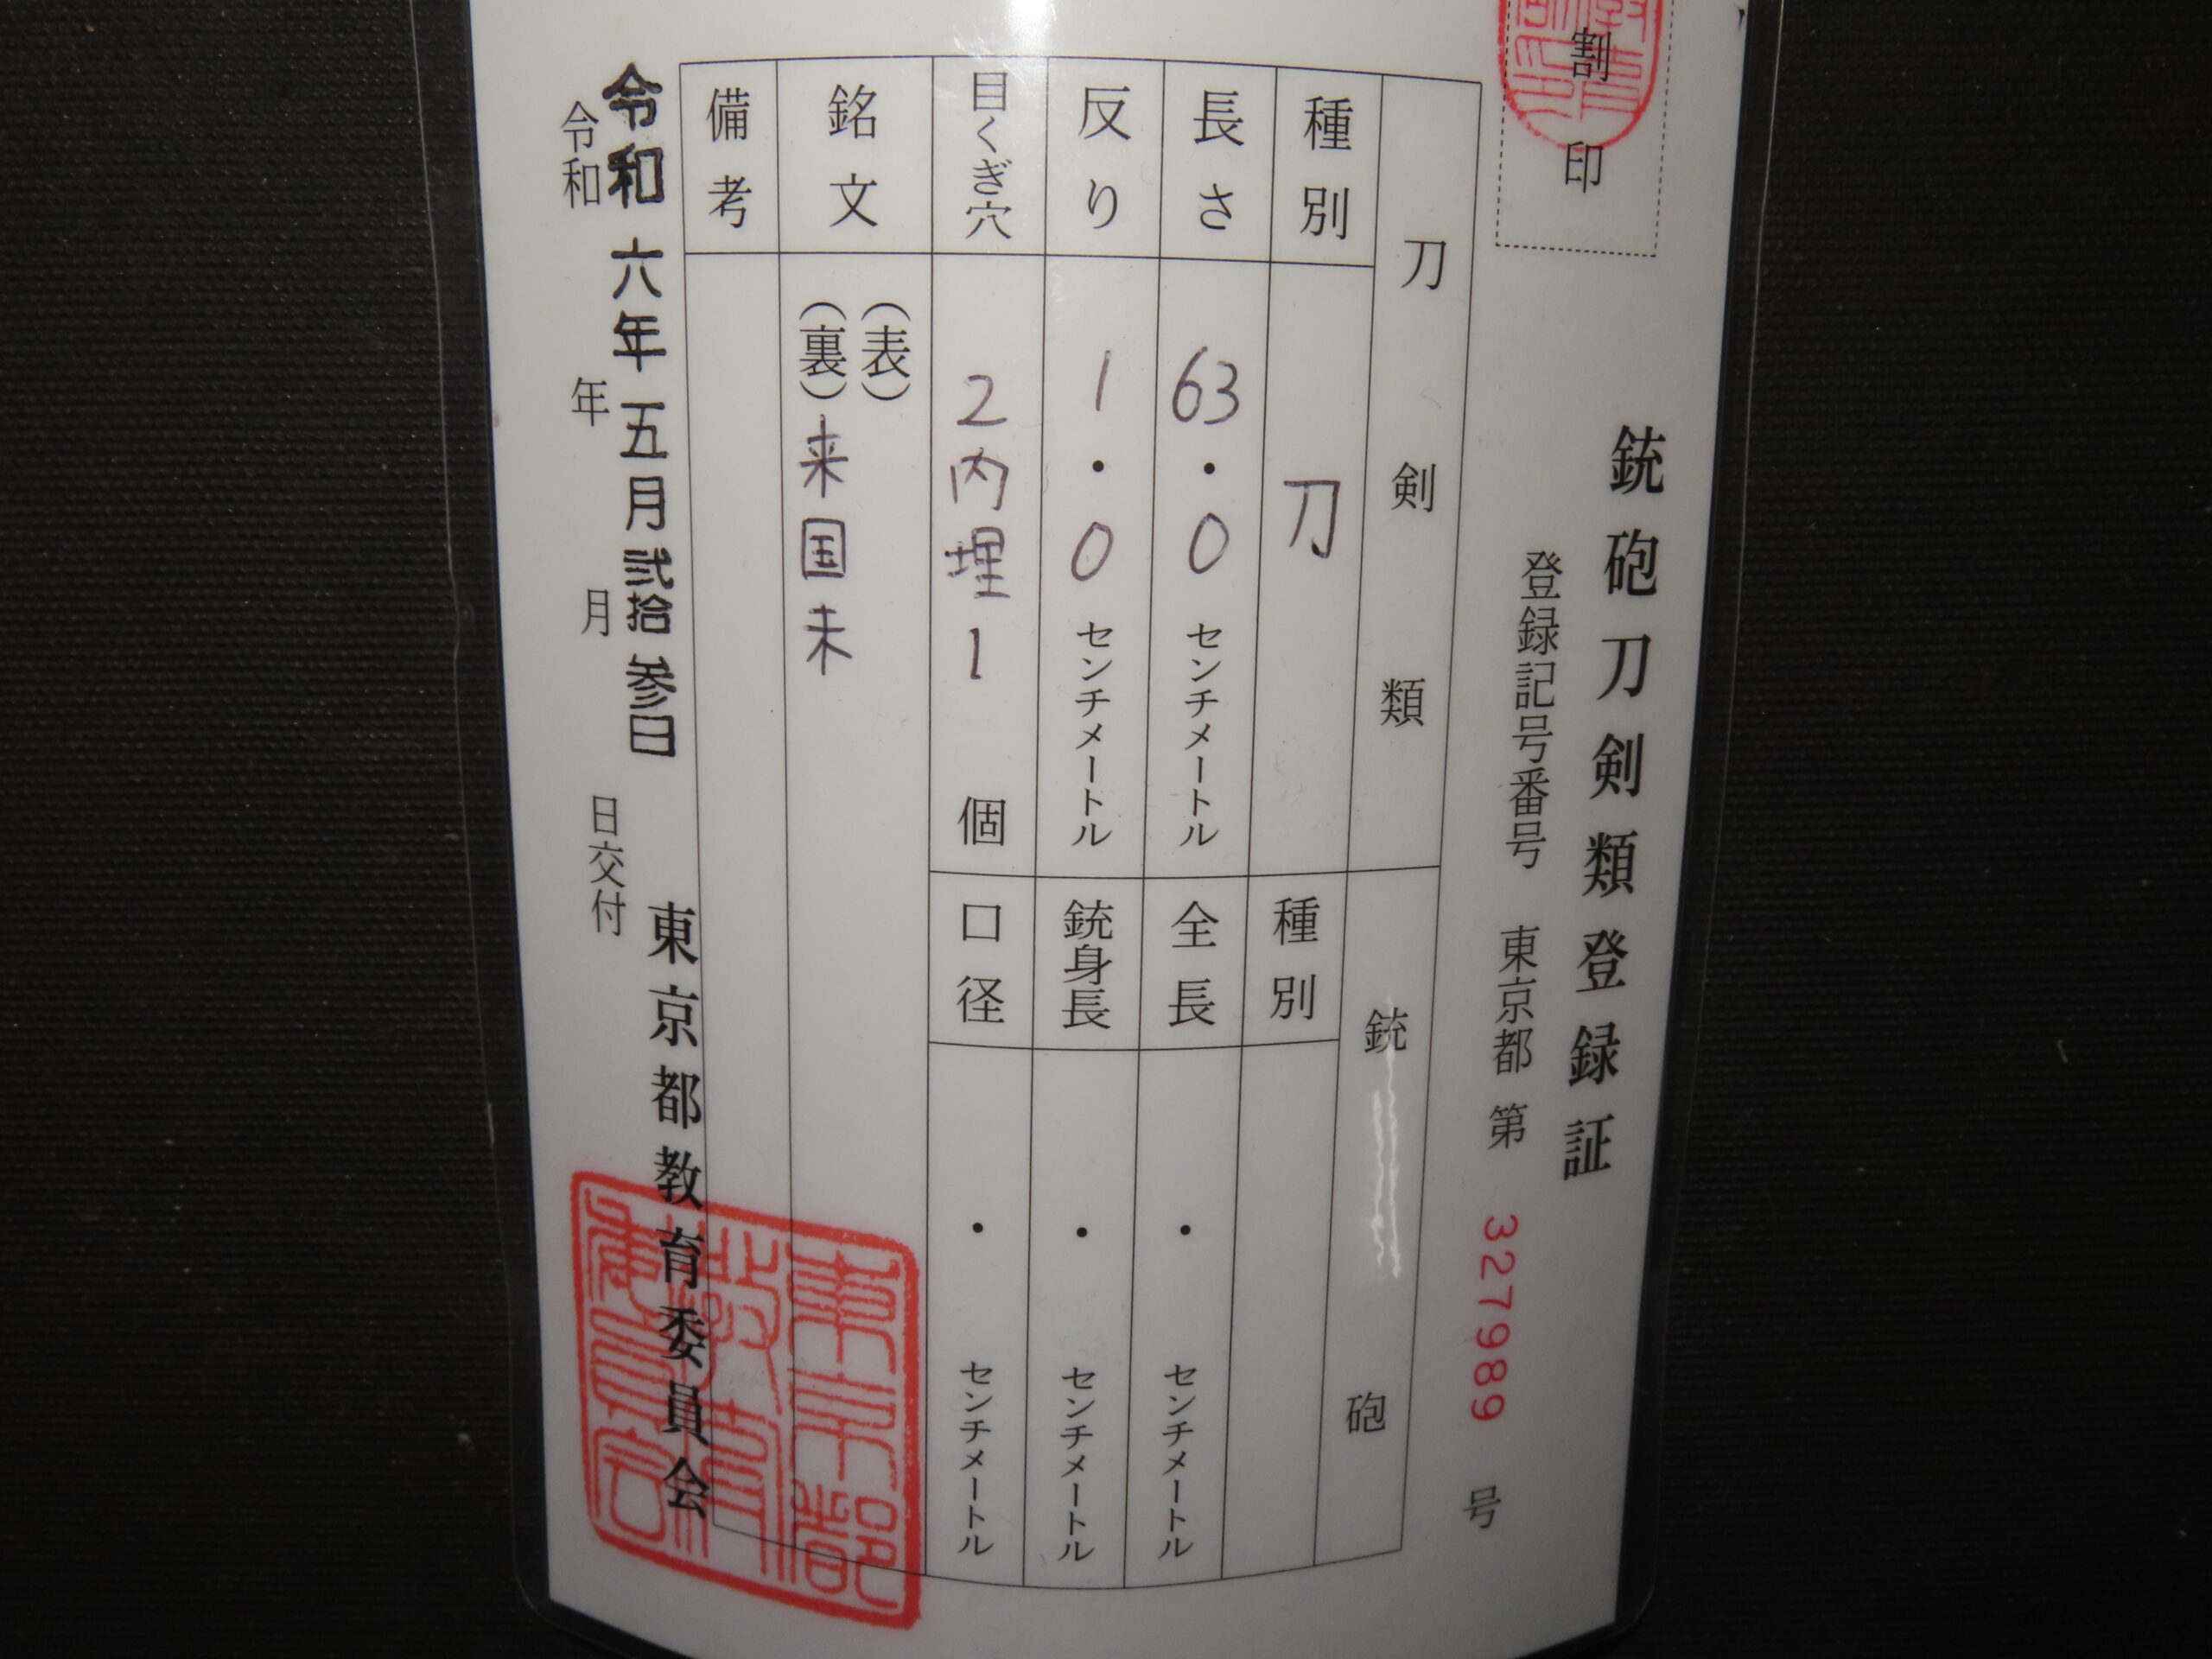 割印
銃砲刀剣類登録証
登録記号番号 東京都 第 327989 号
刀剣類
種別 刀
長さ 63・0 センチメートル
反り 1・0 センチメートル
目くぎ穴 2内埋1 個
銃砲
種別
全長 ・ センチメートル
銃身長 ・ センチメートル
口径 ・ センチメートル
銘文 (表)
(裏) 来国未
備考
令和六年五月弐拾参日
令和 年 月 日交付
東京都教育委員会
東京都教育委員会